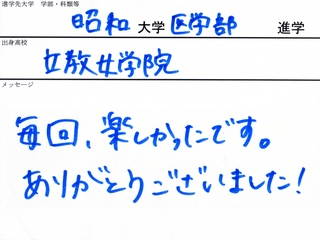 進学先大学 学部・科類等
昭和 大学 医学部 進学
出身高校
立教女学院
メッセージ
毎回、楽しかったです。
ありがとうございました!